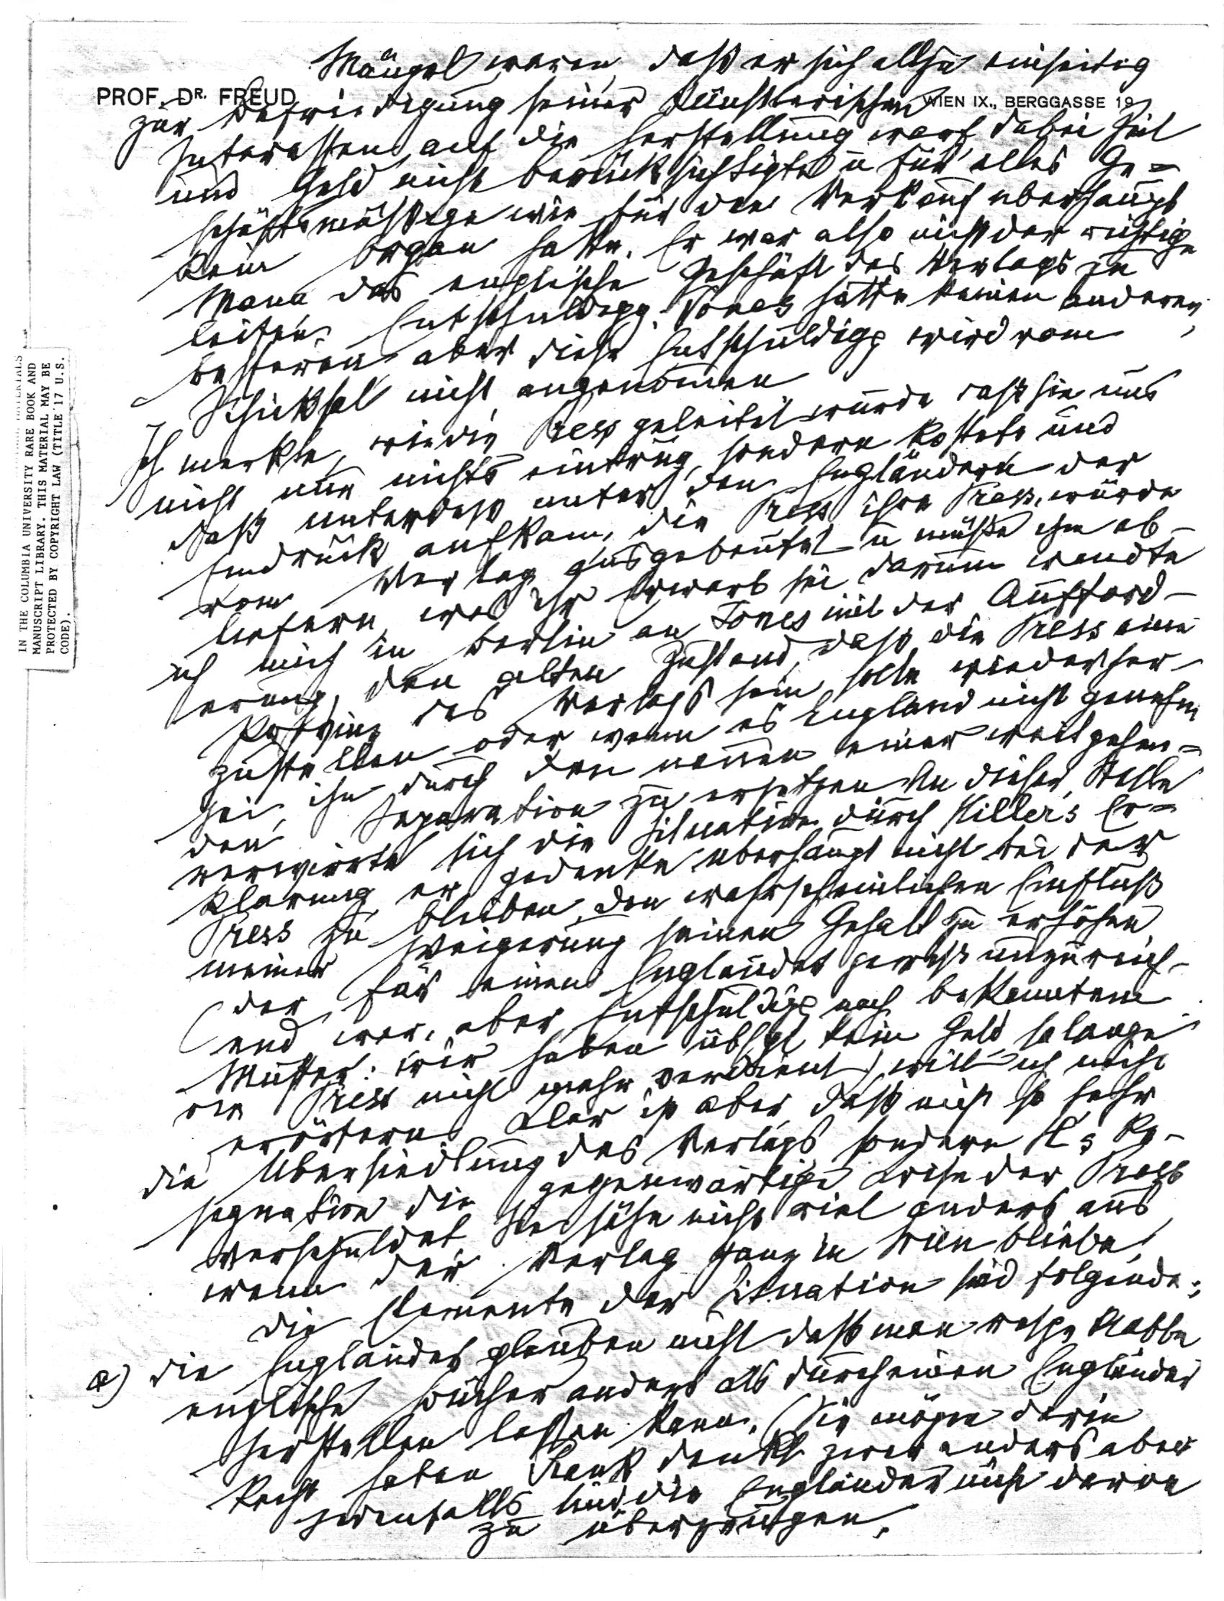 Mängel waren, daß er sich allzu einseitig
PROF. DR. FREUD
WIEN IX., BERGGASSE 19
zur Befriedigung seiner künstlerischen
Interessen auf die Herstellung warf, dabei Zeit
und Geld nicht berücksichtigte u für alles Ge=
schäftsmäßige wie für den Verkauf überhaupt
kein Organ hatte. Er war also nicht der richtige
Mann das englische Geschäft des Verlags zu
leiten. Entschuldigg: Jones hatte keinen anderen,
besseren aber diese Entschuldigg wird vom
Schicksal nicht angenommen
Ich merkte, wie die Press geleitet wurde daß sie uns
nicht nur nichts eintrug, sondern kostete und
daß unterdess unter den Engländern der
Eindruck aufkam, die Press ihre Press, würde
vom Verlag ausgebeutet u müßte ihm ab-
liefern was ihr Erwerb sei darum wandte
ich mich in Berlin an Jones mit der Aufford-
erung, den alten Zustand, daß die Press eine
Provinz des Verlags sein solle wiederher-
zustellen oder wenn es England nicht genehm
sei, ihn durch den neuen einer weitgehen=
den Separation zu ersetzen An dieser Stelle
verwirrte sich die Situation durch Hiller's Er=
klärung, er gedenke überhaupt nicht bei der
Press zu bleiben, den wahrscheinlichen Einfluß
meiner Weigerung seinen Gehalt zu erhöhen
(der für einen Engländer gewiß unzureich-
end war, aber, Entschuldigg nach bekanntem
Muster: wir haben übhpt kein Geld solange
die Press nicht mehr verdient) will ich nicht
erörtern. Klar ist aber, daß nicht so sehr
die Übersiedlung des Verlags sondern H's Re-
signation die gegenwärtige Krise der Press
verschuldet Sie sähe nicht viel anders aus,
wenn der Verlag ganz in Wien bliebe.
Die Elemente der Situation sind folgende:
a) die Engländer glauben nicht daß man respektable
englische Bücher anders als durch einen Engländer
herstellen lassen kann. (Sie mögen darin
Recht haben Rank denkt zwar anders aber
jedenfalls sind die Engländer nicht davon
zu überzeugen.
IN THE COLUMBIA UNIVERSITY RARE BOOK AND
MANUSCRIPT LIBRARY. THIS MATERIAL MAY BE
PROTECTED BY COPYRIGHT LAW (TITLE 17 U.S.
CODE).